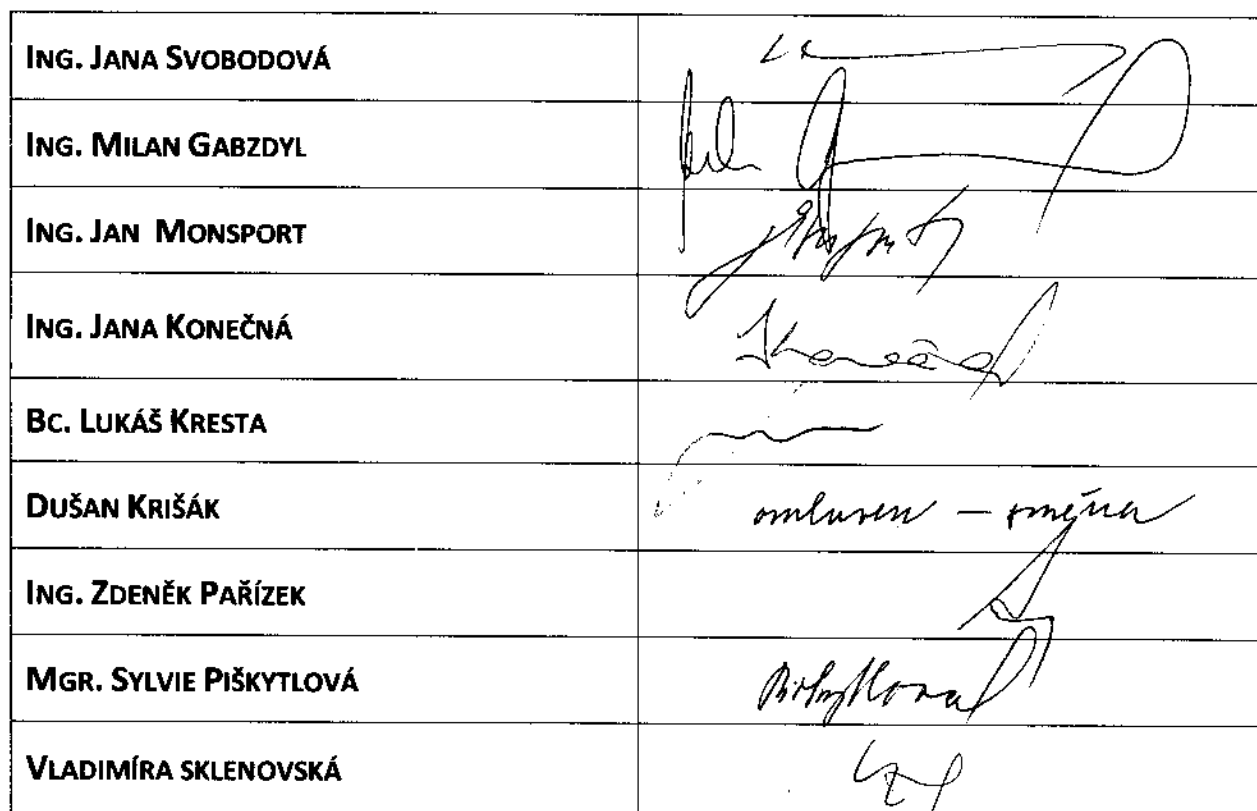 ING. JANA SVOBODOVÁ
ING. MILAN GABZDYL
ING. JAN MONSPORT
ING. JANA KONEČNÁ
BC. LUKÁŠ KRESTA
DUŠAN KRIŠÁK omluven – směna
ING. ZDENĚK PAŘÍZEK
MGR. SYLVIE PIŠKYTLOVÁ
VLADIMÍRA SKLENOVSKÁ